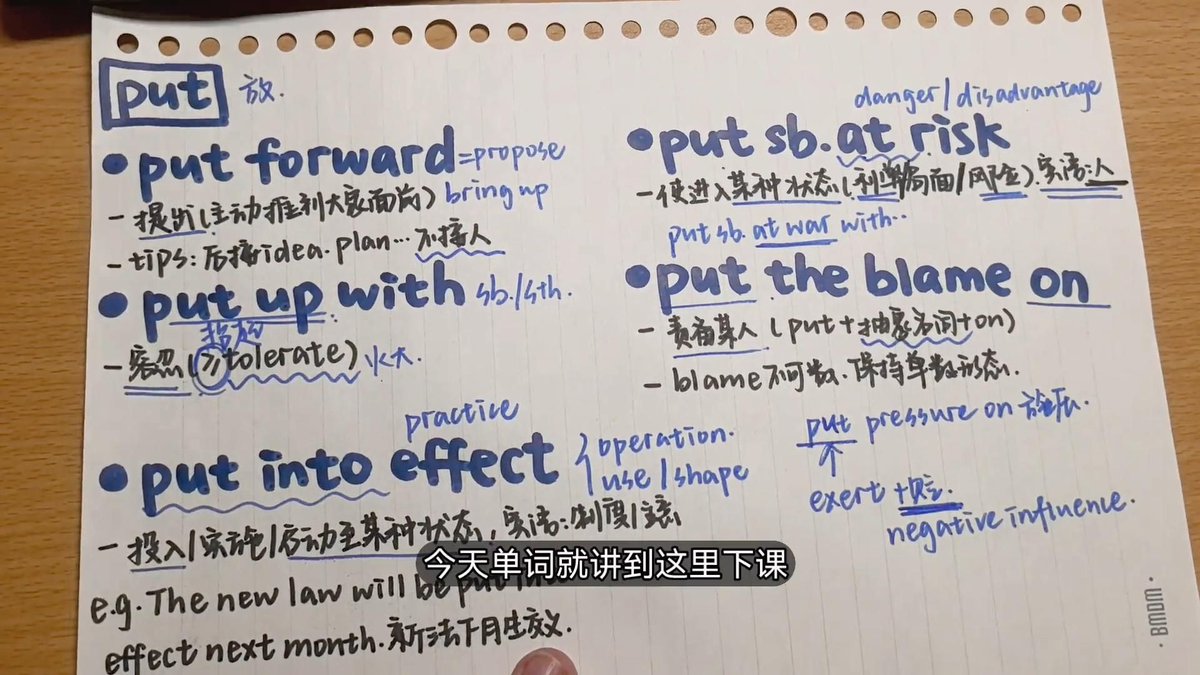 put 放.
put forward =propose
bring up
- 提出(主动推到大家面前)
- tips: 后接idea.plan… 不接人
put up with sb./sth.
- 容忍(≥tolerate) 火大.
practice
put into effect operation.
use / shape
- 投入/实施/启动至某种状态, 宾语:制度/主意
e.g. The new law will be put into
effect next month. 新法下月生效.
danger/disadvantage
put sb. at risk
- 使进入某种状态(利弊局面/风险).宾语:人
put sb. at war with..
put the blame on
- 责备某人 (put+抽象名词+on)
- blame不可数.保持单数形态.
put pressure on 施压.
exert +贬.
negative influence.
今天单词就讲到这里下课
BMDM